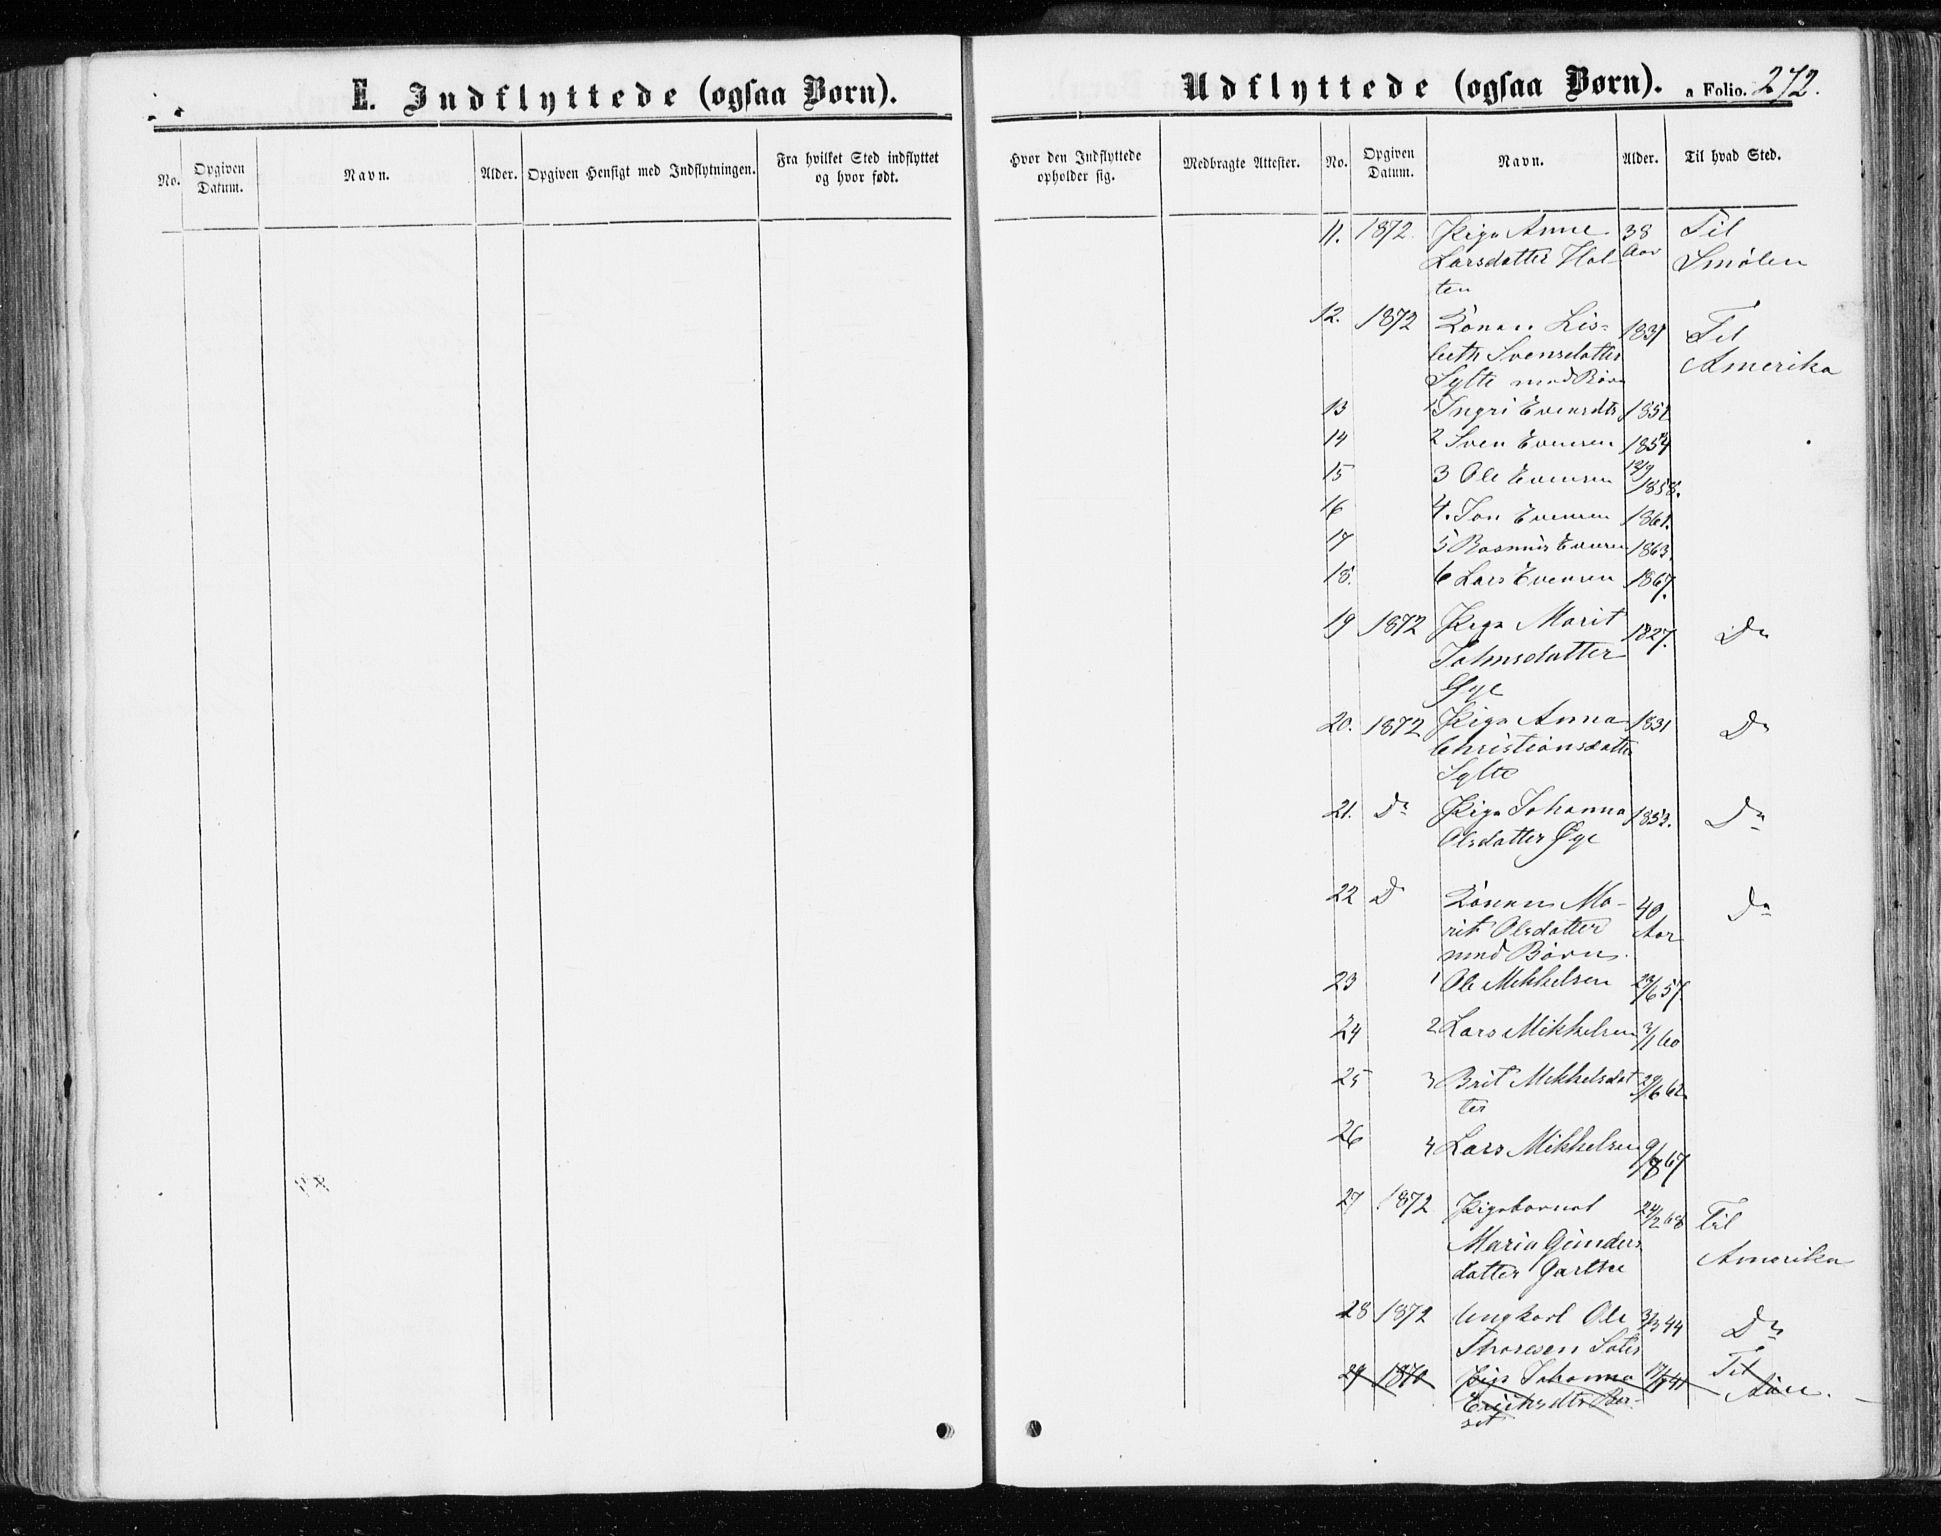 E. Indflyttede (ogsaa Børn).
No.
Opgiven
Datum.
Navn.
Alder.
Opgiven Hensigt med Indflytningen.
Fra hvilket Sted indflyttet
og hvor født.
Udflyttede (ogsaa Børn).
a Folio. 272.
Hvor den Indflyttede
opholder sig.
Medbragte Attester.
No.
Opgiven
Datum.
Navn.
Alder.
Til hvad Sted.
11. 1872. Pige Anne 38 Til
Larsdatter Hol- Aar Smølen
ten
12. 1872 Konen Lis- 1831 Til
beth Svensdatter Amerika
Sylte med Børn
13 1 Ingri Evensdtr 1851
14 2 Sven Evensen 1854
15 3 Ole Evensen 12/9
1858.
16 4. Jon Evensen 1861.
17 5 Rasmus Evensen 1863.
18. 6 Lars Evensen 1867.
19 1872 Pige Marit 1827. Do
Johnsdatter
Øye
20. 1872 Pige Anna 1831 Do
Christiansdatter
Sylte
21. Do Pige Johanna 1853. Do
Olsdatter Øye
22 D Konen Ma- 40 Do
rit Olsdatter Aar
med Børn.
23 1 Ole Mikkelsen 23/6 57
24 2 Lars Mikkelsen 3/1 60
25 3 Brit Mikkelsdat 29/6 62
ter
26 4 Lars Mikkelsen 9/8 67
27 1872 Pigebarnet 24/2 68 Til
Maria Gunders Amerika
datter Garthe
28 1872 Ungkarl Ole 3/3 44 Do
Thoresen Sæter
29 1870 Pige Johanna 17/9 41 Til
Erichsdtr Bor-
set